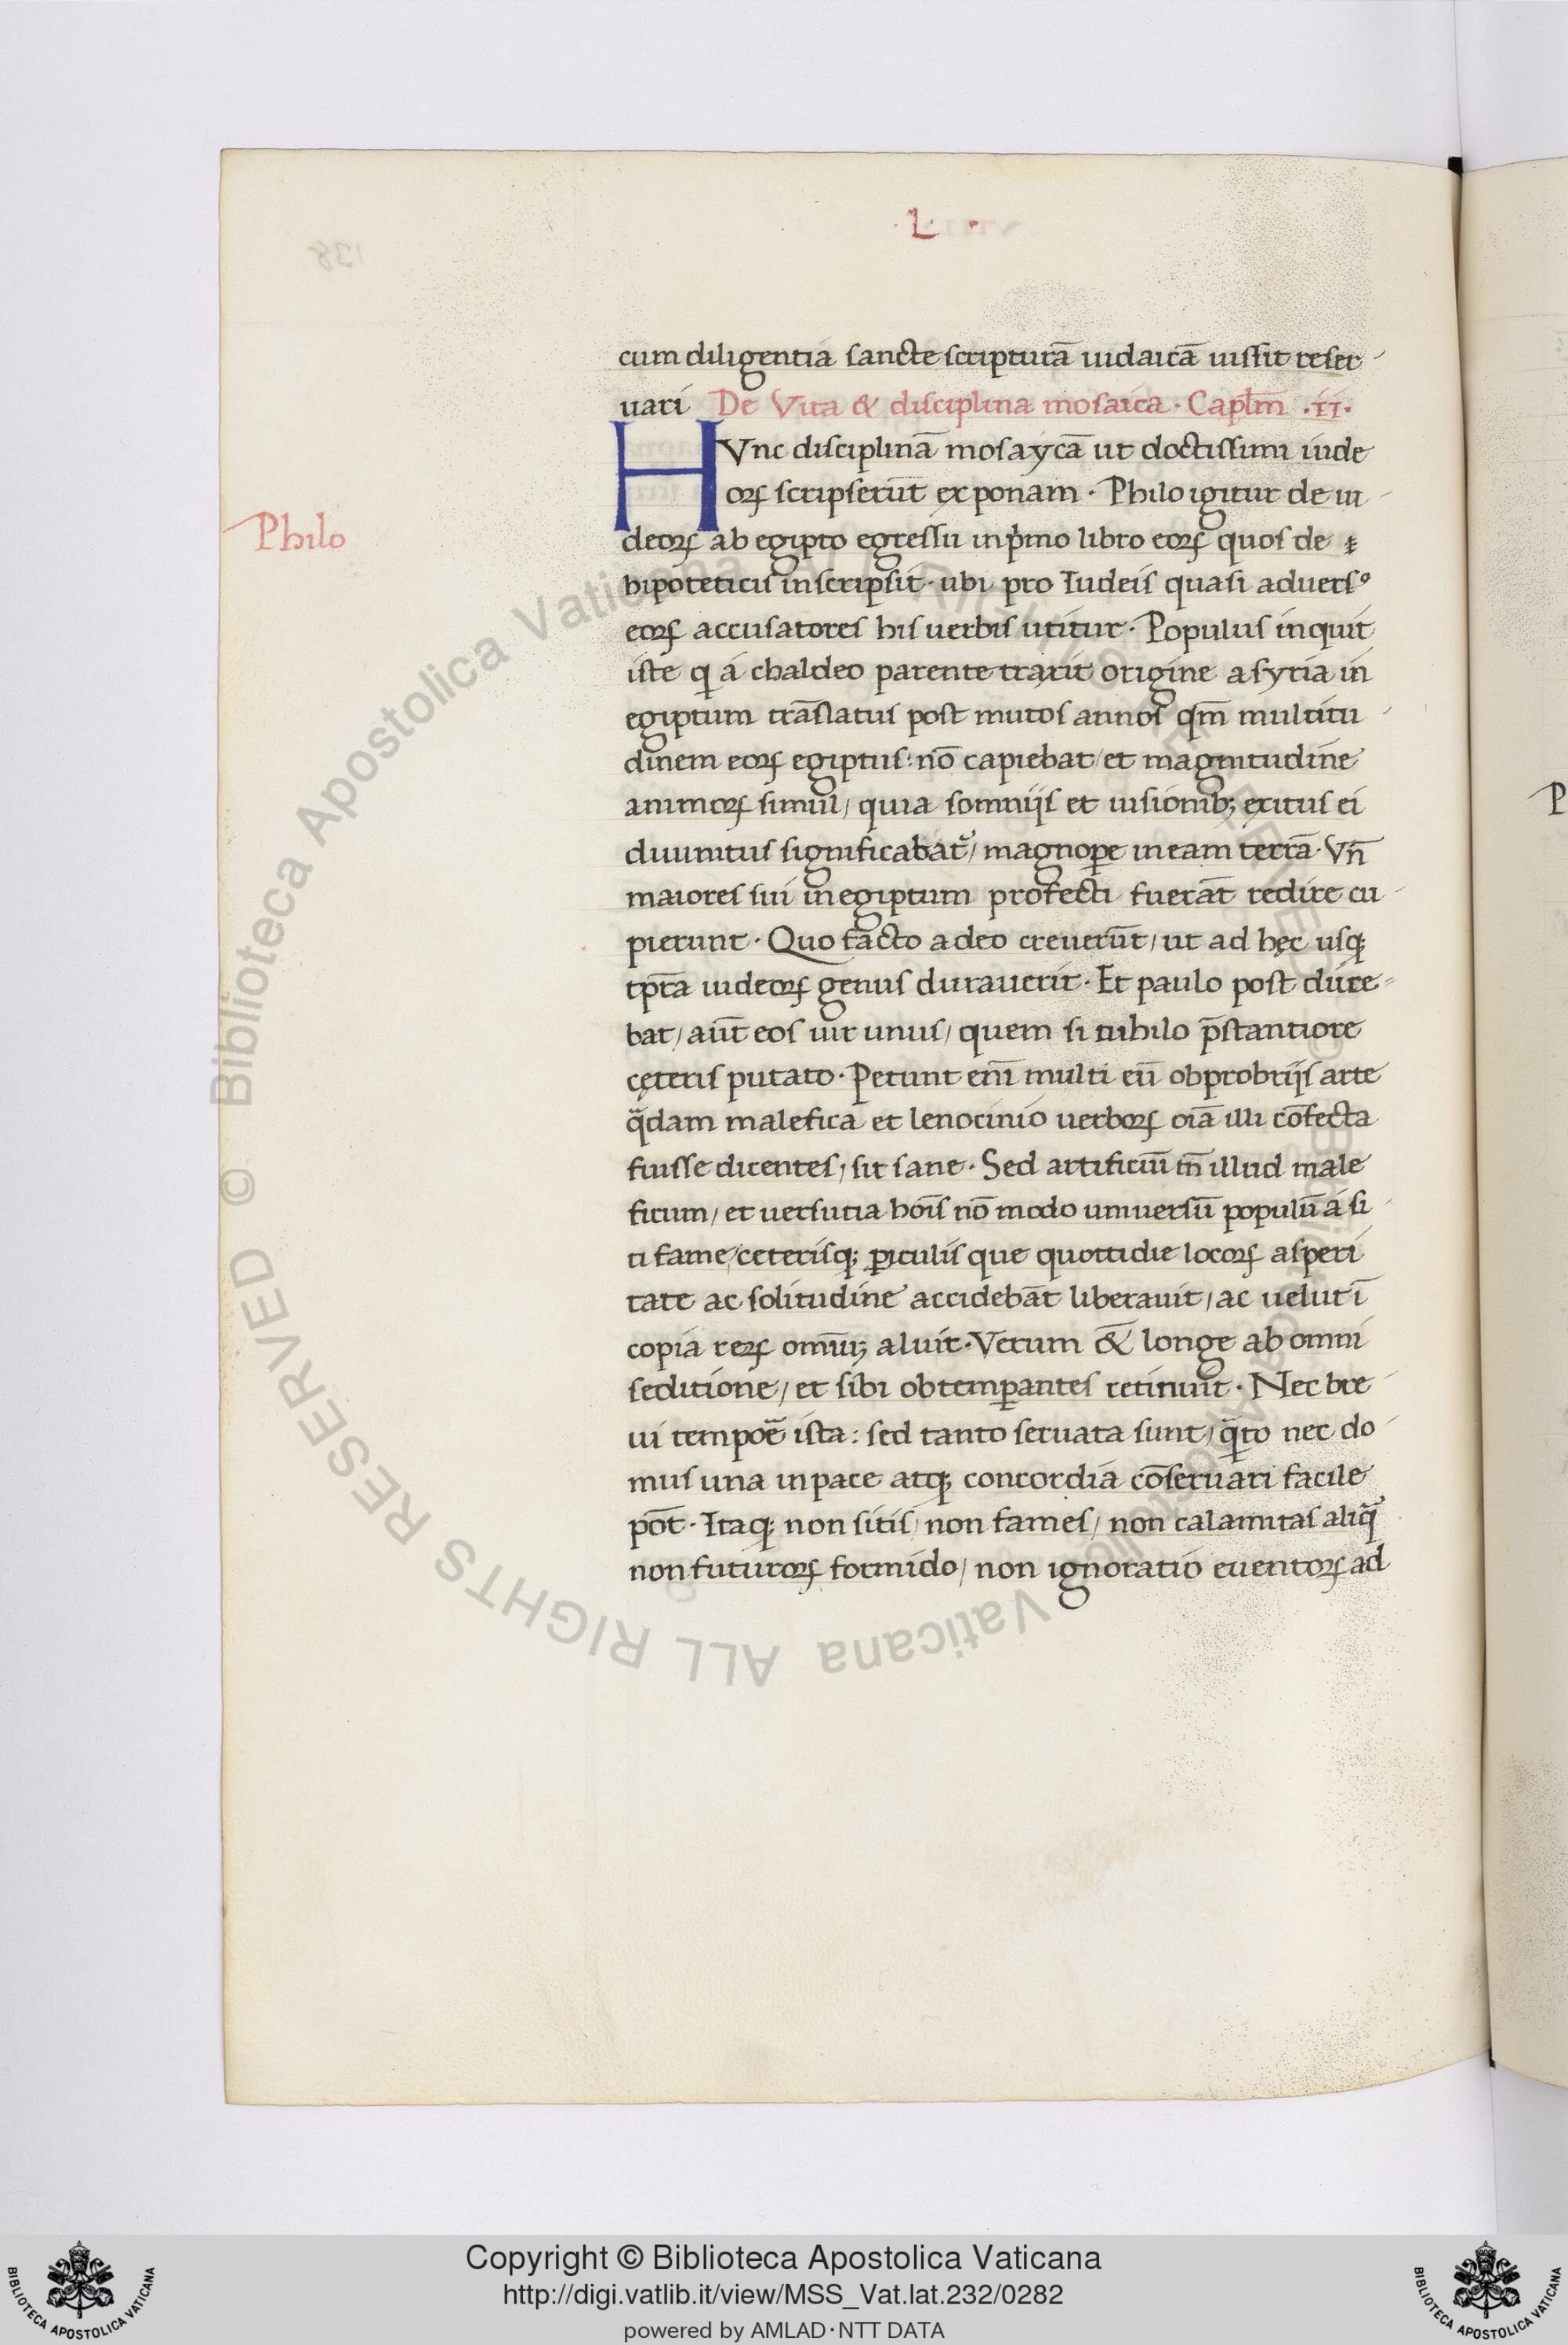 · L ·
cum diligentia sancte scripturā iudaicā iussit reser
uari De Vita & disciplina mosaica · Capl̄m · II ·
HVnc disciplinā mosaycā ut doctissimi iude
oꝝ scripserūt exponam · Philo igitur de iu
Philo
deoꝝ ab egipto egressu in pͥmo libro eoꝝ quos de
hipoteticis inscripsit · ubi pro Iudeis quasi aduersꝰ
eoꝝ accusatores his uerbis utitur · Populus inquit
iste q á chaldeo parente traxit origine a syria in
egiptum trāslatus post mutos annos qm̄ multitu
dinem eoꝝ egiptus: nō capiebat / et magnitudine
animoꝝ simul / quia somnijs et uisionibꝫ exitus ei
diuinitus significabat᷑ / magnoꝑe in eam terrā · Vn̄
maiores sui in egiptum profecti fuerāt redire cu
pierunt · Quo facto adeo creuerūt / ut ad hęc usqꝫ
tp̄ra iudeoꝝ genus durauerit · Et paulo post duce
bat / aūt eos uir unus / quem si nihilo p̄stantiore
cęteris putato · Petunt eni᷑ multi eū obprobrijs arte
q̄dam malefica et lenocinio uerboꝝ oīa illi cōfecta
fuisse dicentes / sit sane · Sed artificiū tn̄ illud male
ficum / et uersutia hoīs nō modo uniuersū populū á si
ti fame / ceterisqꝫ ꝑiculis que quottidie locoꝝ asperi
tate ac solitudine accidebāt liberauit / ac uelut ī
copia reꝝ omīuꝫ aluit · Verum & longe ab omni
seditione / et sibi obtemꝑantes retinuit · Nec bre
ui tempoē ista: sed tanto seruata sunt / q̄to nec do
mus una in pace atqꝫ concordia cōseruari facile
pōt · Itaqꝫ non sitis / non fames / non calamitas aliq̄
non futuroꝝ formido / non ignoratio euentoꝝ ad
P
Copyright © Biblioteca Apostolica Vaticana
http://digi.vatlib.it/view/MSS_Vat.lat.232/0282
powered by AMLAD·NTT DATA